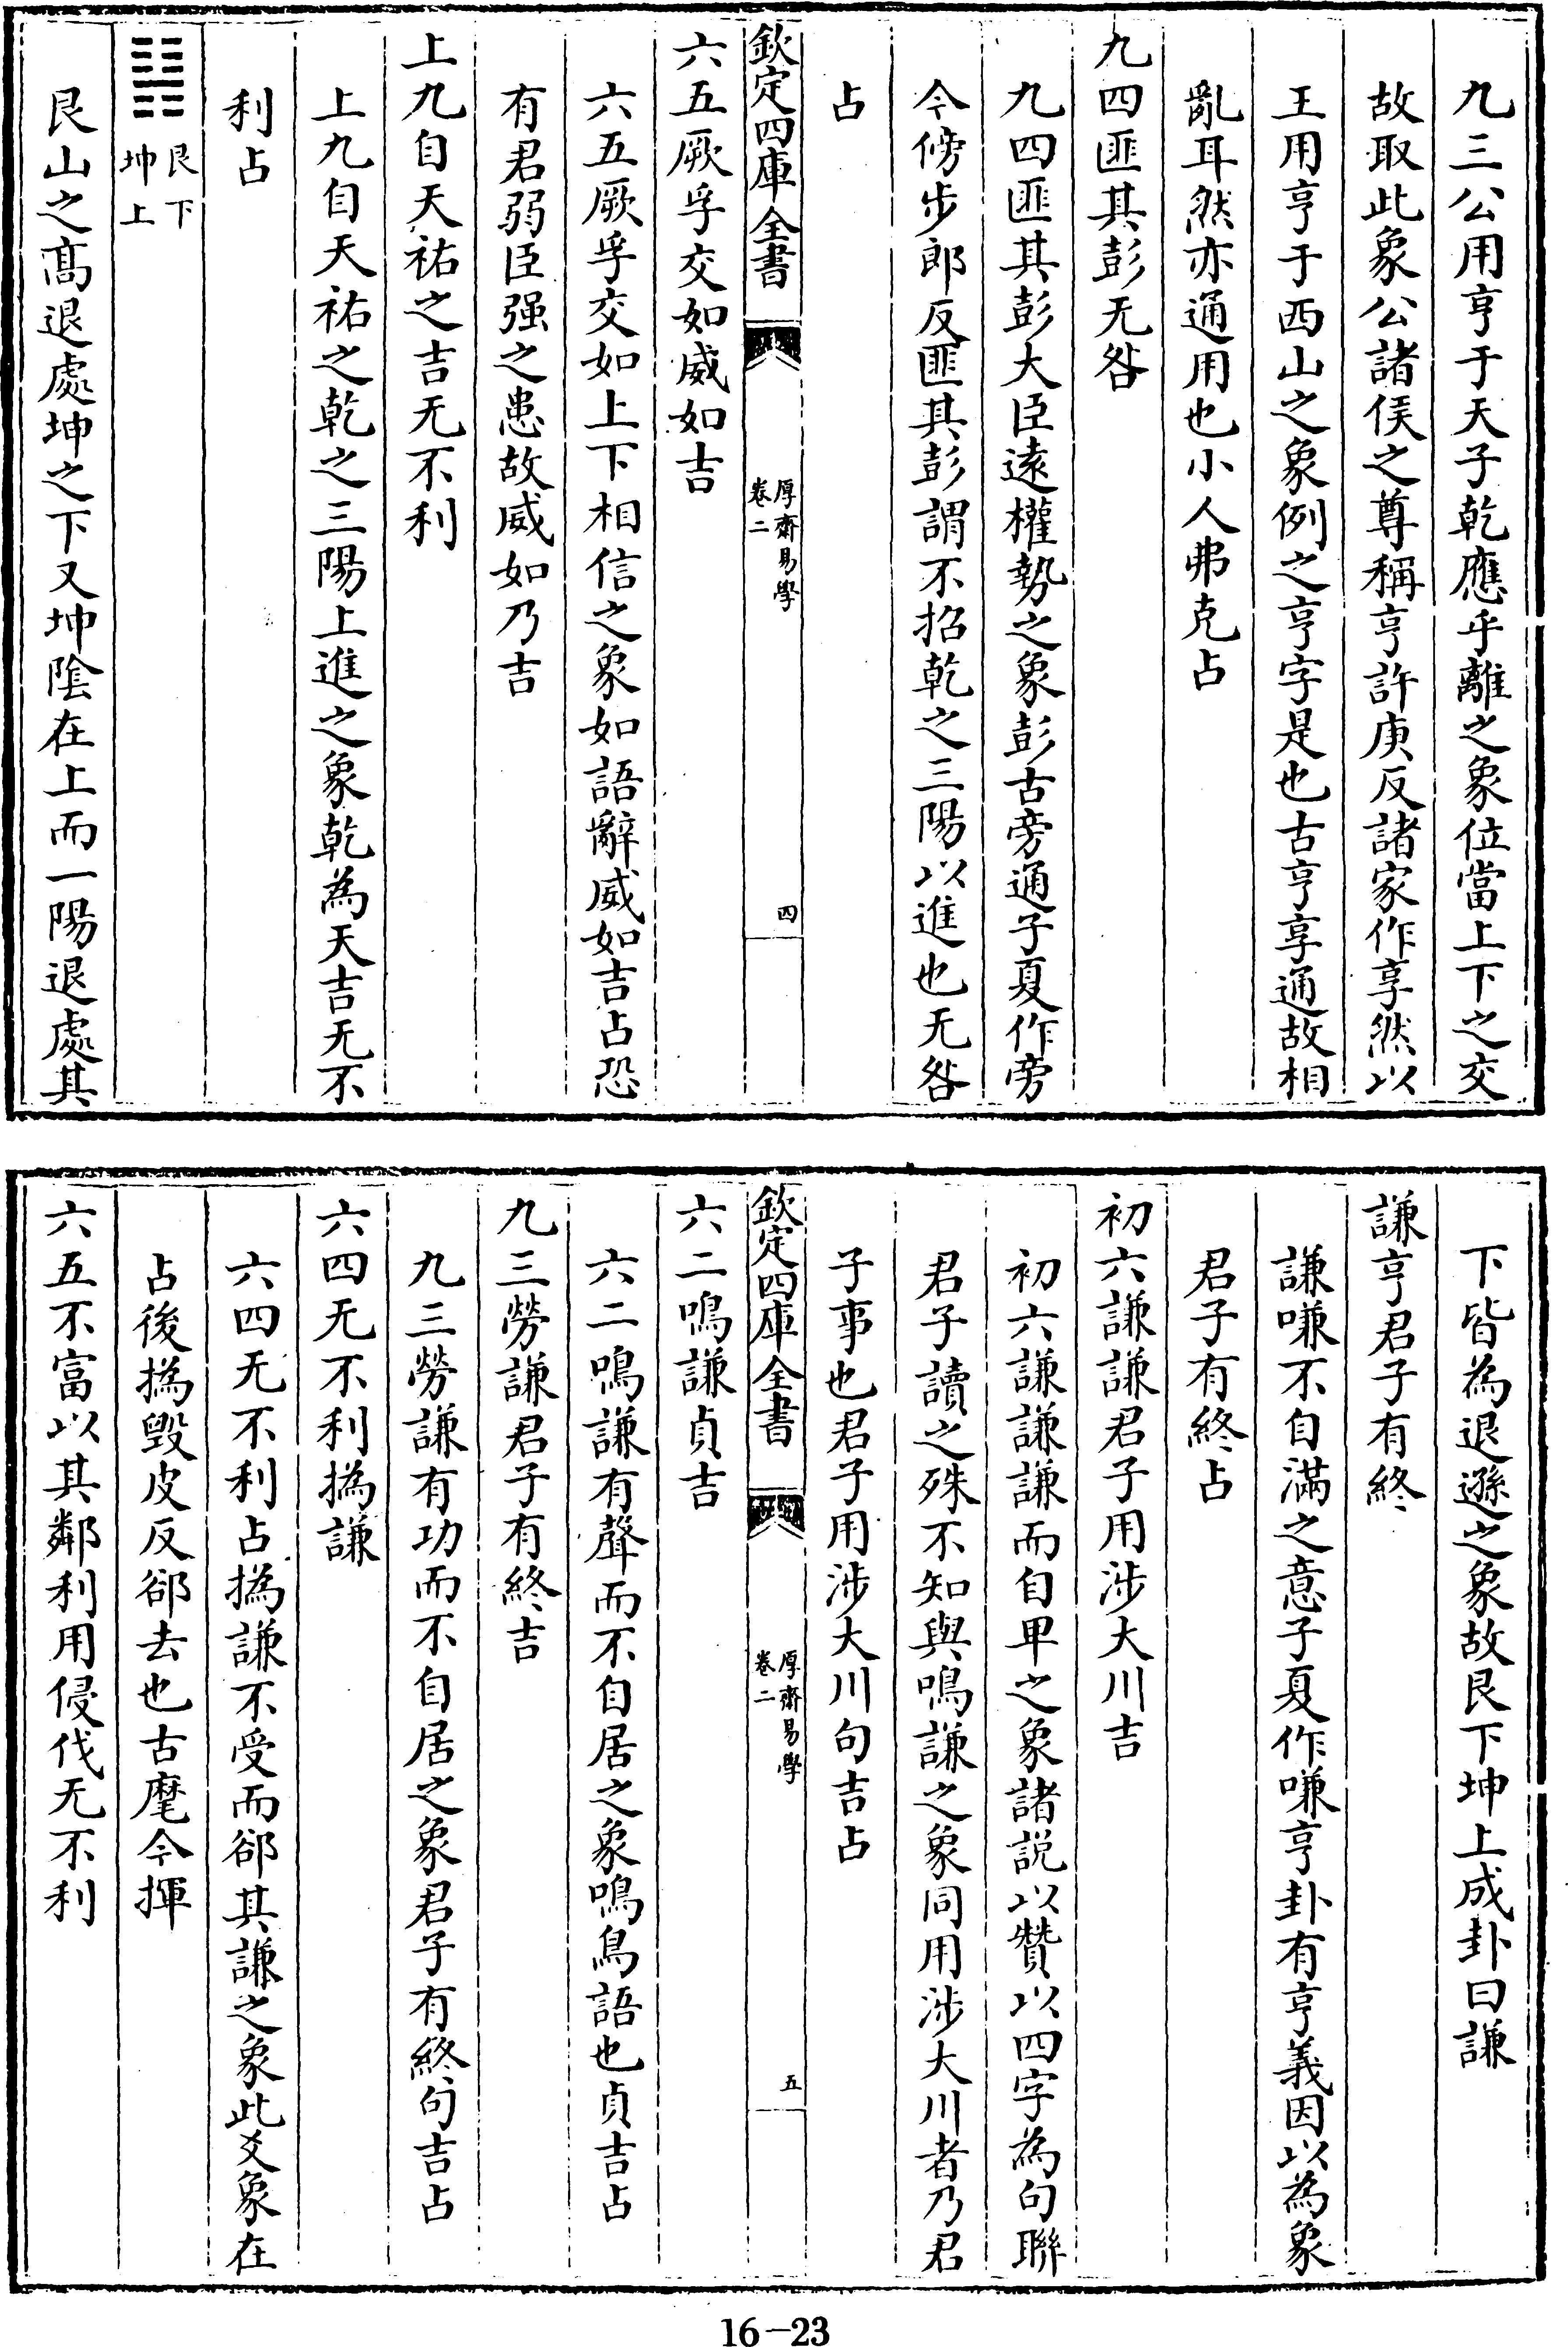 九三公用亨于天子乾應乎離之象位當上下之交
故取此象公諸侯之尊稱亨許庚反諸家作享然以
王用亨于西山之象例之亨字是也古亨享通故相
亂耳然亦通用也小人弗克占
九四匪其彭无咎
九四匪其彭大臣遠權勢之象彭古旁通子夏作旁
今傍步郎反匪其彭謂不招乾之三陽以進也无咎
占
欽定四庫全書
厚齋易學
卷二
四
六五厥孚交如威如吉
六五厥孚交如上下相信之象如語辭威如吉占恐
有君弱臣强之患故威如乃吉
上九自天祐之吉无不利
上九自天祐之乾之三陽上進之象乾為天吉无不
利占
䷎
艮下
坤上
艮山之髙退處坤之下又坤陰在上而一陽退處其
下皆為退遜之象故艮下坤上成卦曰謙
謙亨君子有終
謙嗛不自滿之意子夏作嗛亨卦有亨義因以為象
君子有終占
初六謙謙君子用涉大川吉
初六謙謙謙而自卑之象諸説以贊以四字為句聯
君子讀之殊不知與鳴謙之象同用涉大川者乃君
子事也君子用涉大川句吉占
欽定四庫全書
厚齋易學
卷二
五
六二鳴謙貞吉
六二鳴謙有聲而不自居之象鳴鳥語也貞吉占
九三勞謙君子有終吉
九三勞謙有功而不自居之象君子有終句吉占
六四无不利撝謙
六四无不利占撝謙不受而郤其謙之象此爻象在
占後撝毁皮反郤去也古麾今揮
六五不富以其鄰利用侵伐无不利
16-23